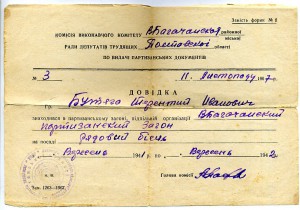 Замість форми № 2
КОМІСІЯ ВИКОНАВЧОГО КОМІТЕТУ В.Багачанської районної
РАДИ ДЕПУТАТІВ ТРУДЯЩИХ Полтавської області
ПО ВИДАЧІ ПАРТИЗАНСЬКИХ ДОКУМЕНТІВ
№ 3 11 Листопаду 194
ДОВІДКА
Гр. Іванович
знаходився в партизанському загоні, підпільній організації В.Багачанский
партизанский Загон
на посаді рядовой боєць
з Вересень 1941 по Вересень 1942
Голова комісії
М. П.